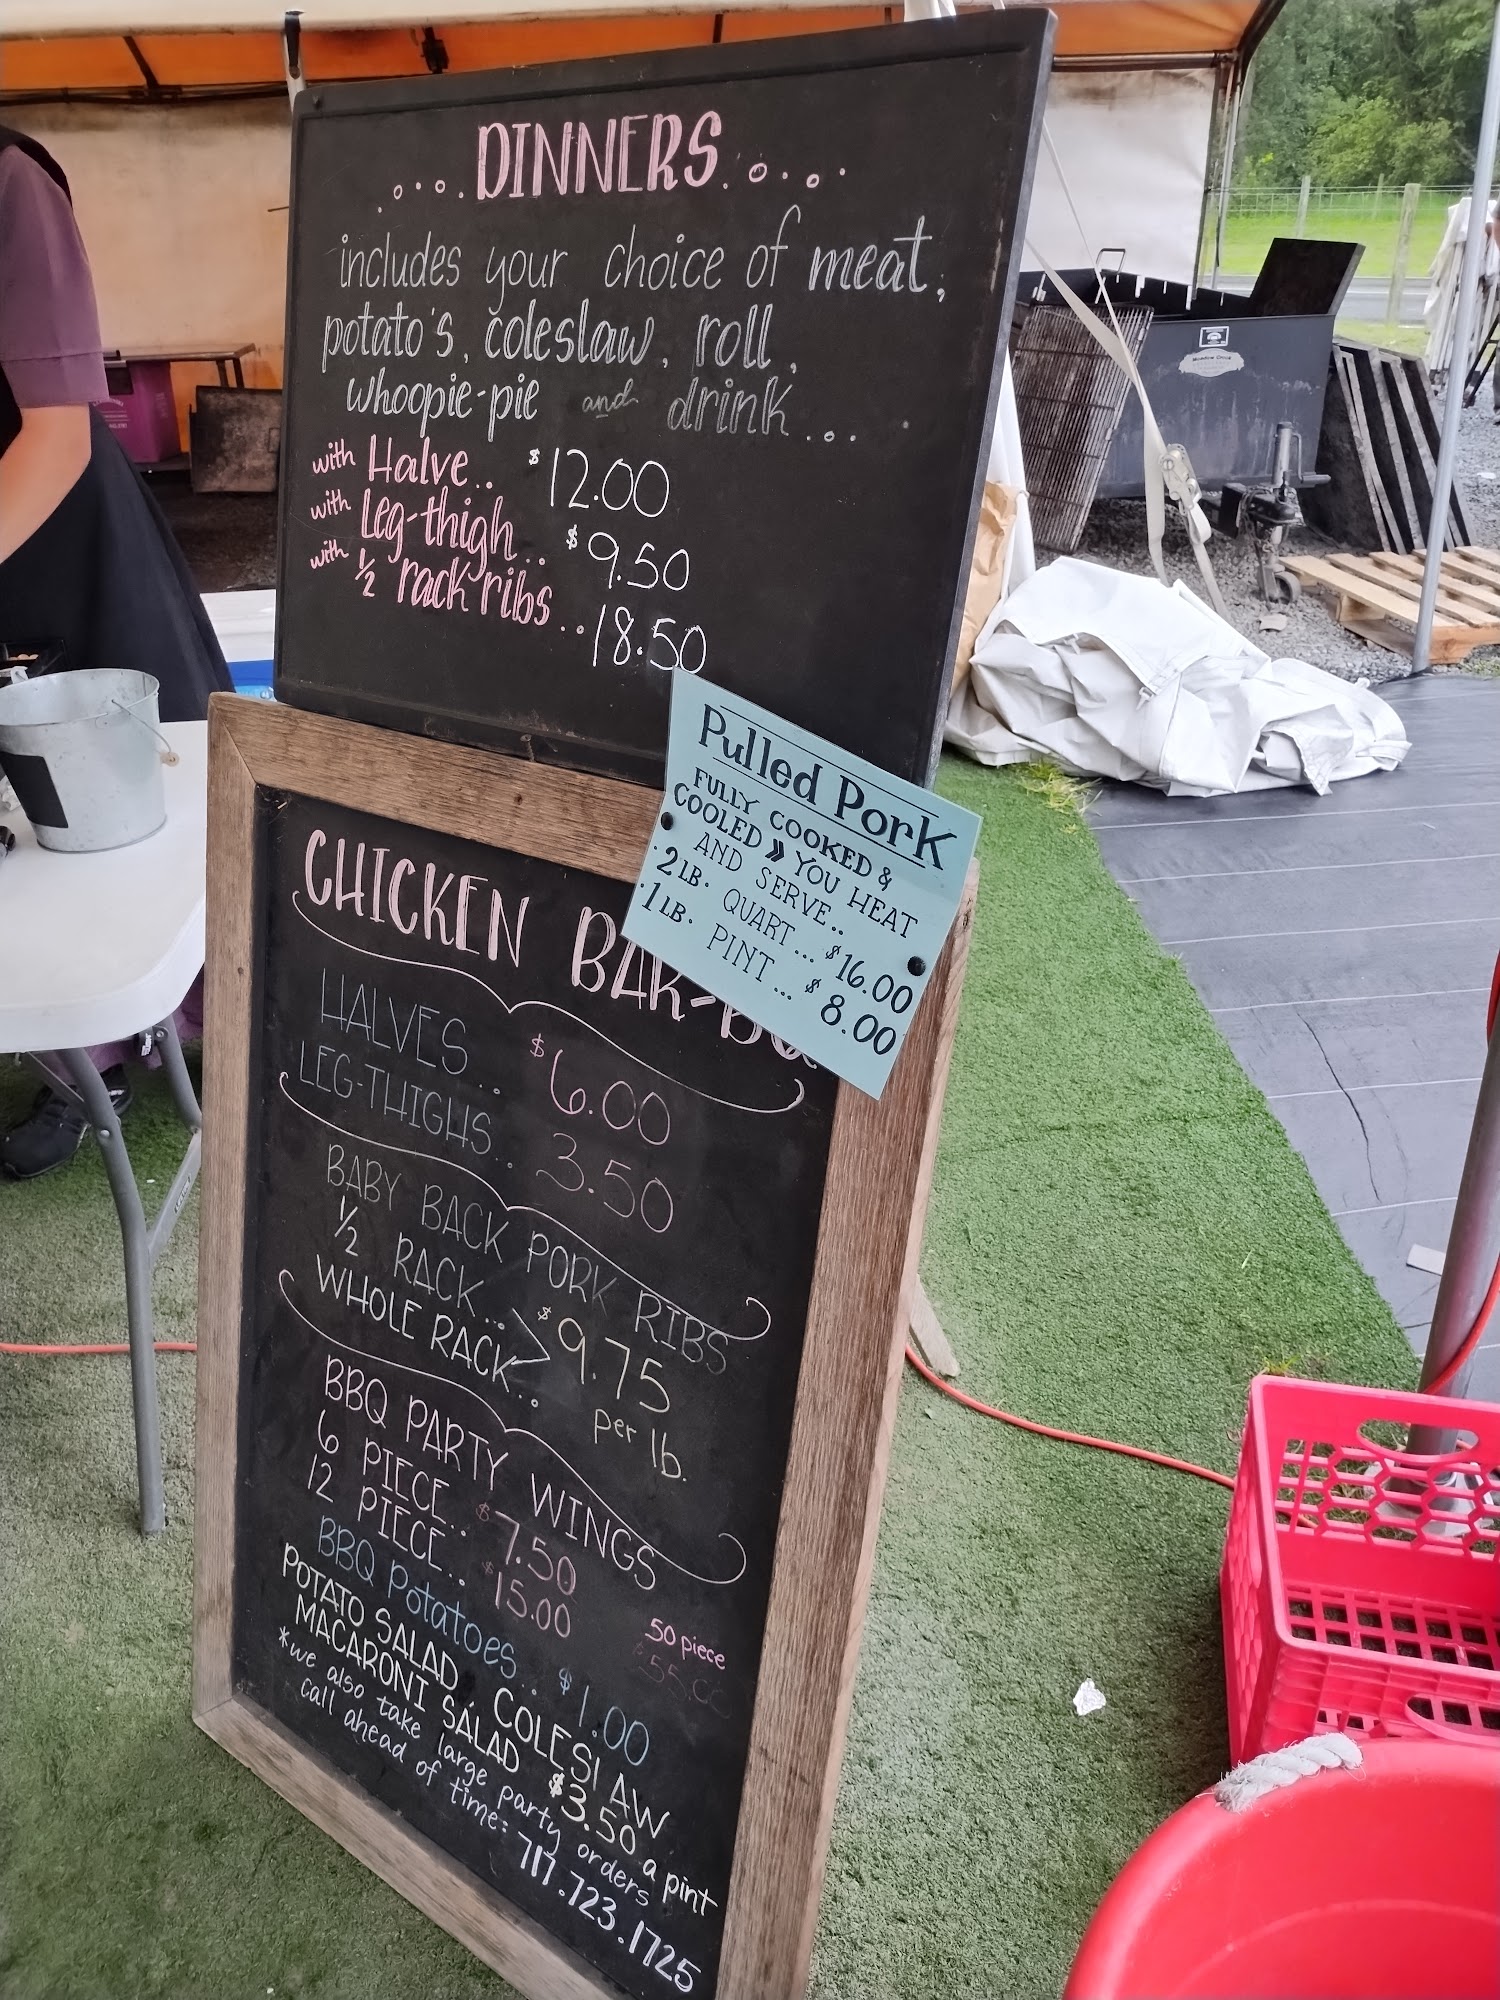 DINNERS
includes your choice of meat,
potato's, coleslaw, roll,
whoopie-pie and drink...
with Halve.. $12.00
with Leg-thigh.. $9.50
with 1/2 rack ribs.. 18.50
Pulled Pork
FULLY COOKED &
COOLED » YOU HEAT
AND SERVE..
• 2 LB. QUART... $16.00
• 1 LB. PINT... $8.00
CHICKEN BAR-BQ
HALVES.. $6.00
LEG-THIGHS.. 3.50
BABY BACK PORK RIBS
1/2 RACK... $9.75
WHOLE RACK... per lb.
BBQ PARTY WINGS
6 PIECE.. $7.50
12 PIECE.. $15.00
50 piece
$55.00
BBQ Potatoes.. $1.00
POTATO SALAD, COLESLAW
MACARONI SALAD $3.50 a pint
*we also take large party orders
call ahead of time: 717.723.1725